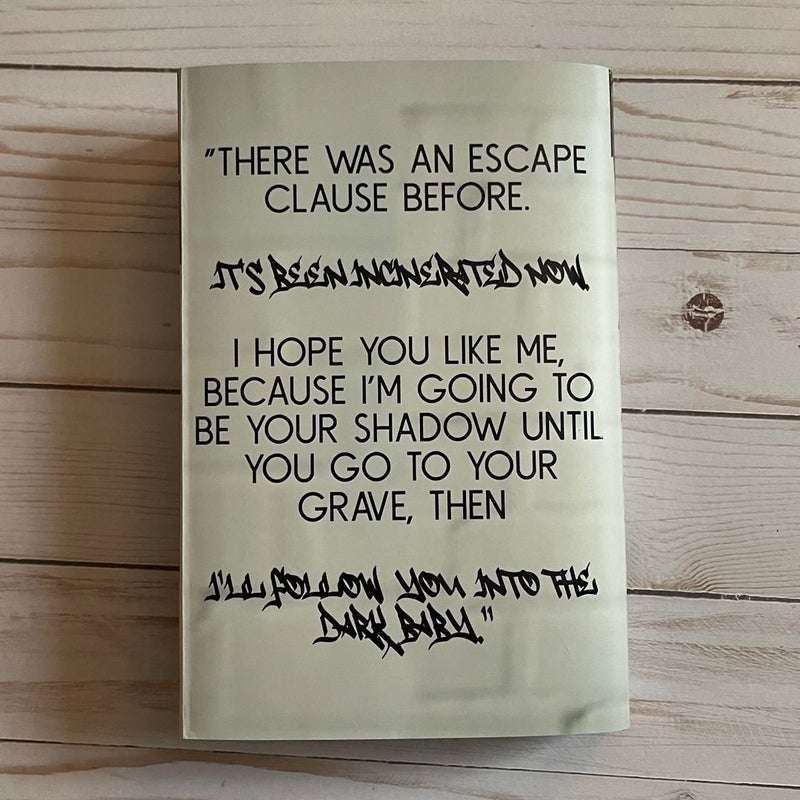 "THERE WAS AN ESCAPE
CLAUSE BEFORE.
IT'S BEEN INCINERATED NOW.
I HOPE YOU LIKE ME,
BECAUSE I'M GOING TO
BE YOUR SHADOW UNTIL
YOU GO TO YOUR
GRAVE, THEN
I'LL FOLLOW YOU INTO THE
DARK BABY."